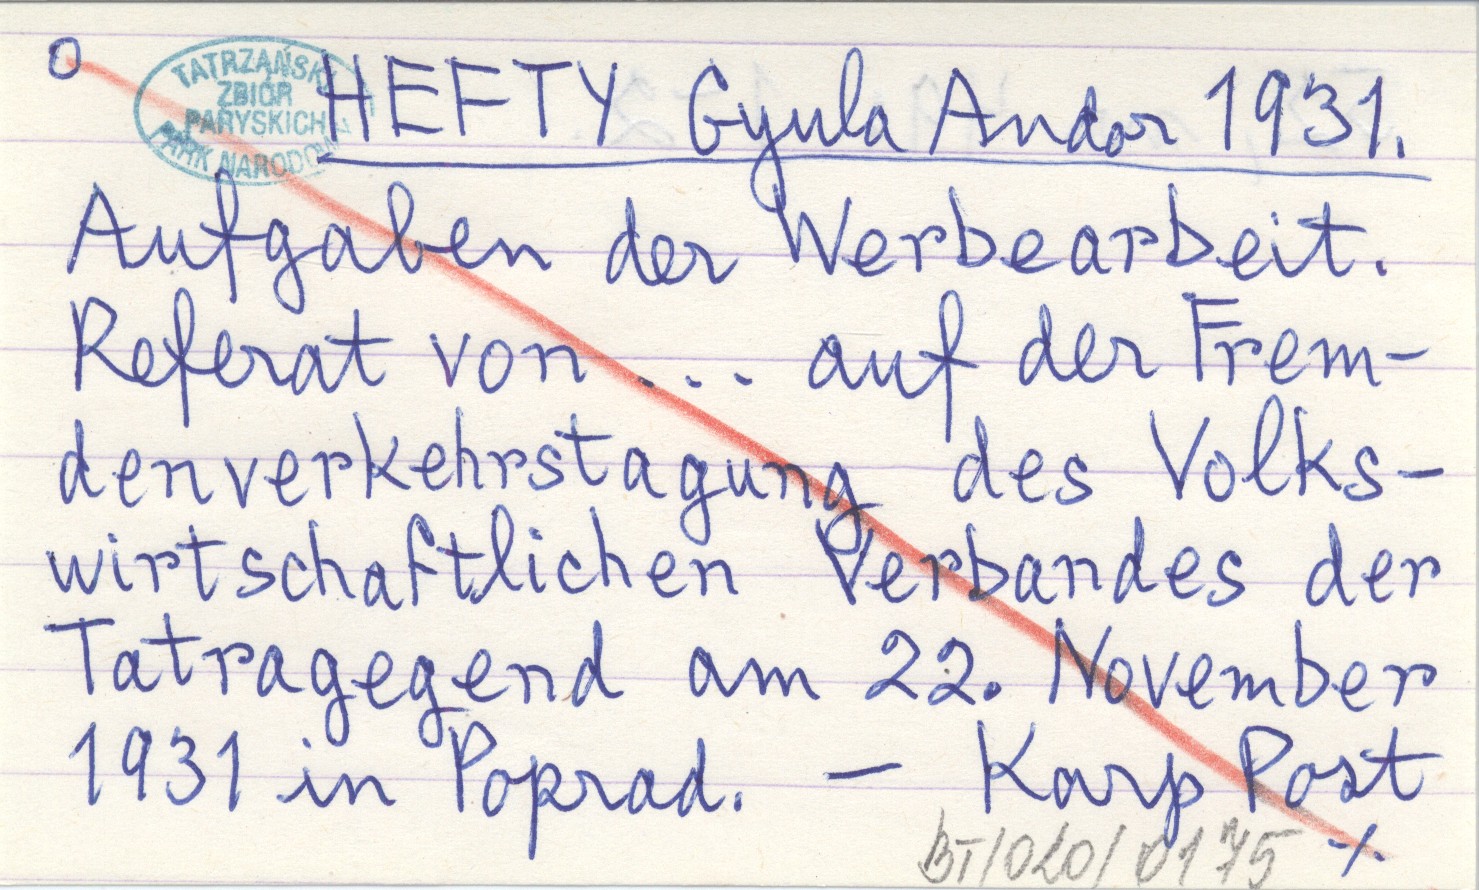 O
TATRZAŃSKI
ZBIÓR
PARYSKICH
PARK NARODOW
HEFTY Gyula Andor 1931.
Aufgaben der Werbearbeit.
Referat von ... auf der Frem-
denverkehrstagung des Volks-
wirtschaftlichen Verbandes der
Tatragegend am 22. November
1931 in Poprad. — Karp Post
BT/020/0175 ./.